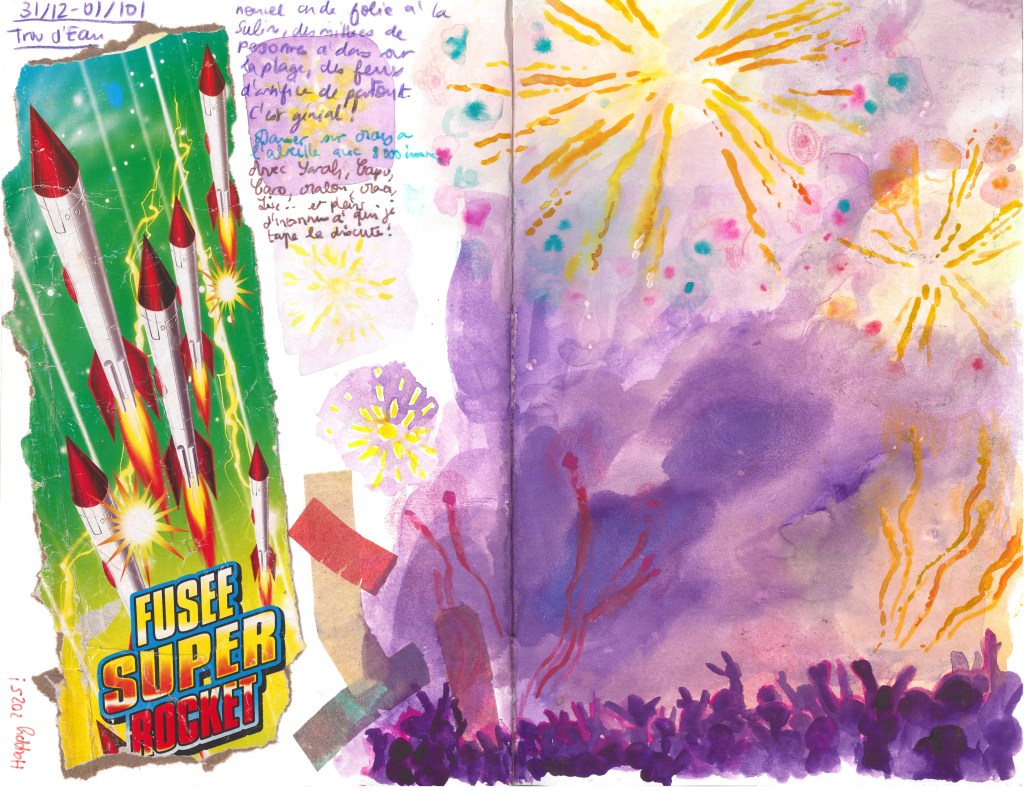 31/12-01/01
Trou d'Eau
nouvel an de folie à la
Saline, des milliers de
personnes à dans sur
la plage, des feux
d'artifice de partout.
C'est génial!
Danser sur
l'abeille avec inconnus
Avec Sarah, Capu,
Caro,
Luc... et plein
d'inconnus à qui je
tape la discute!
FUSEE
SUPER
ROCKET
Happy 2025!